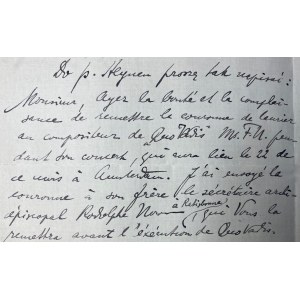 Do p. Heynen proszę tak napisać:
Monsieur, Ayez la bonté et la complai-
sence de remettre la couronne de laurier
au compositeur de "Quo Vadis" Mr. F. N. pen
dant son concert, qui aura lieu le 22 de
ce mois à Amsterdam. J'ai envoyé la
couronne à son frère le sécrétaire arch-
épiscopal Rodolphe à Ratisbonne, qui Vous la
remettra avant l'éxécution de Quo Vadis.